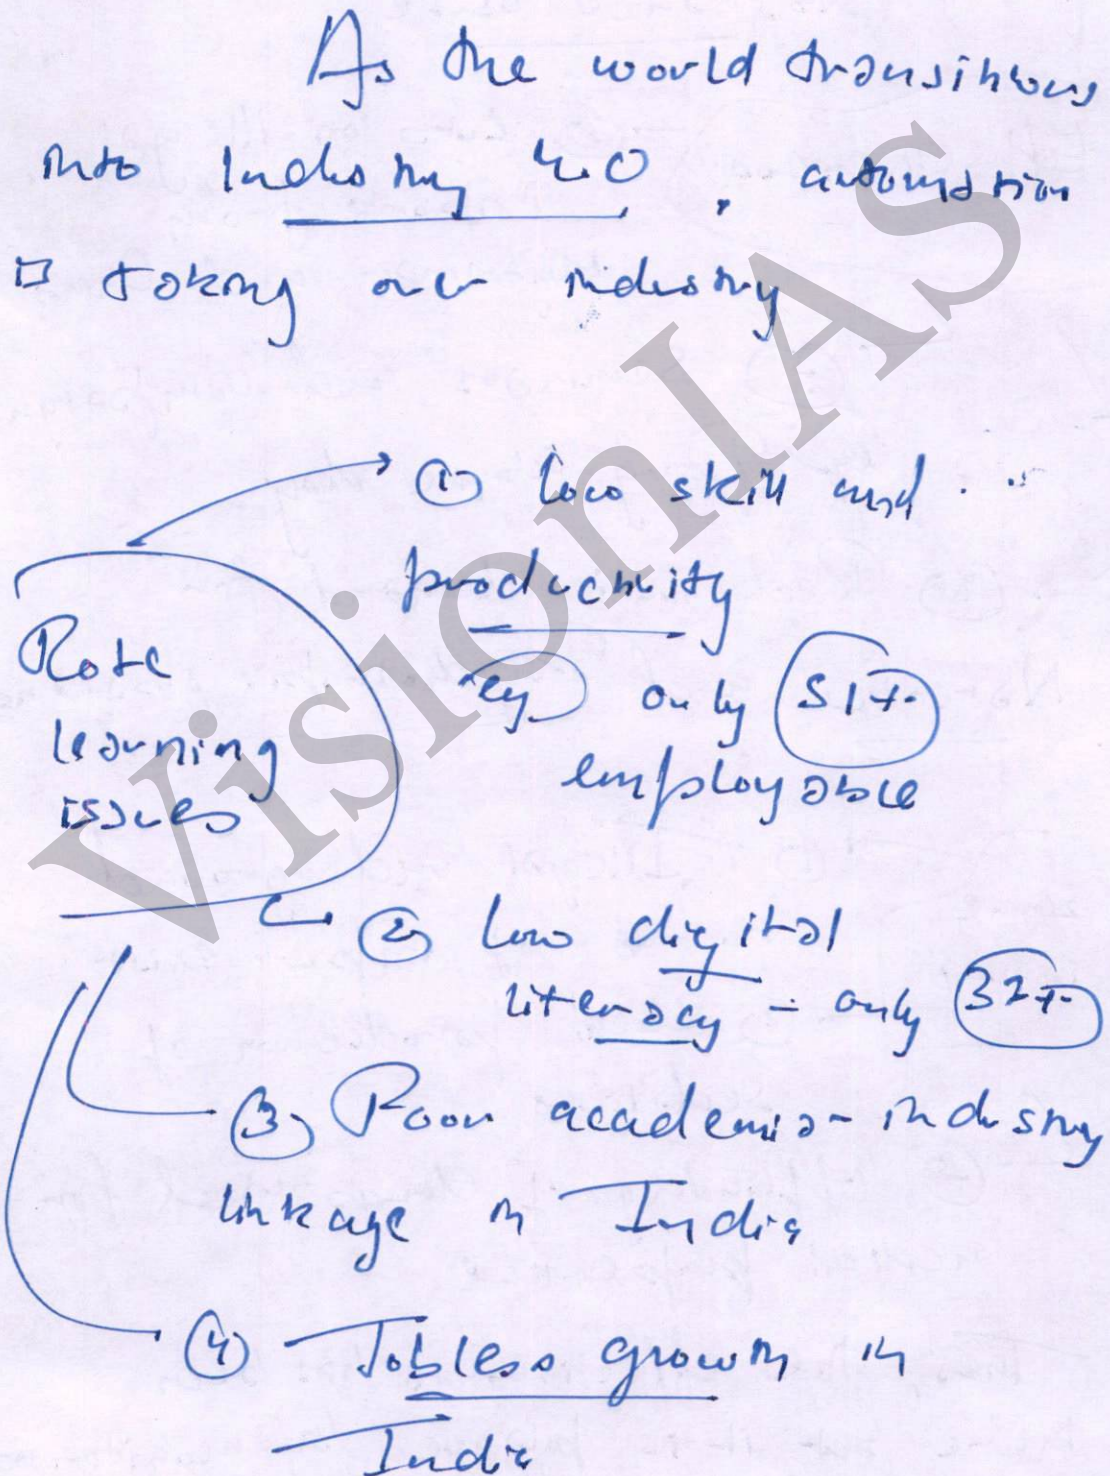 As the world transitions
into Industry 4.0, automation
is taking over industry
① low skill and
productivity
Rote
learning
issues
eg only 51%
employable
② Low digital
literacy - only 32%
③ Poor academia-industry
linkage in India
④ Jobless growth in
India
VisionIAS